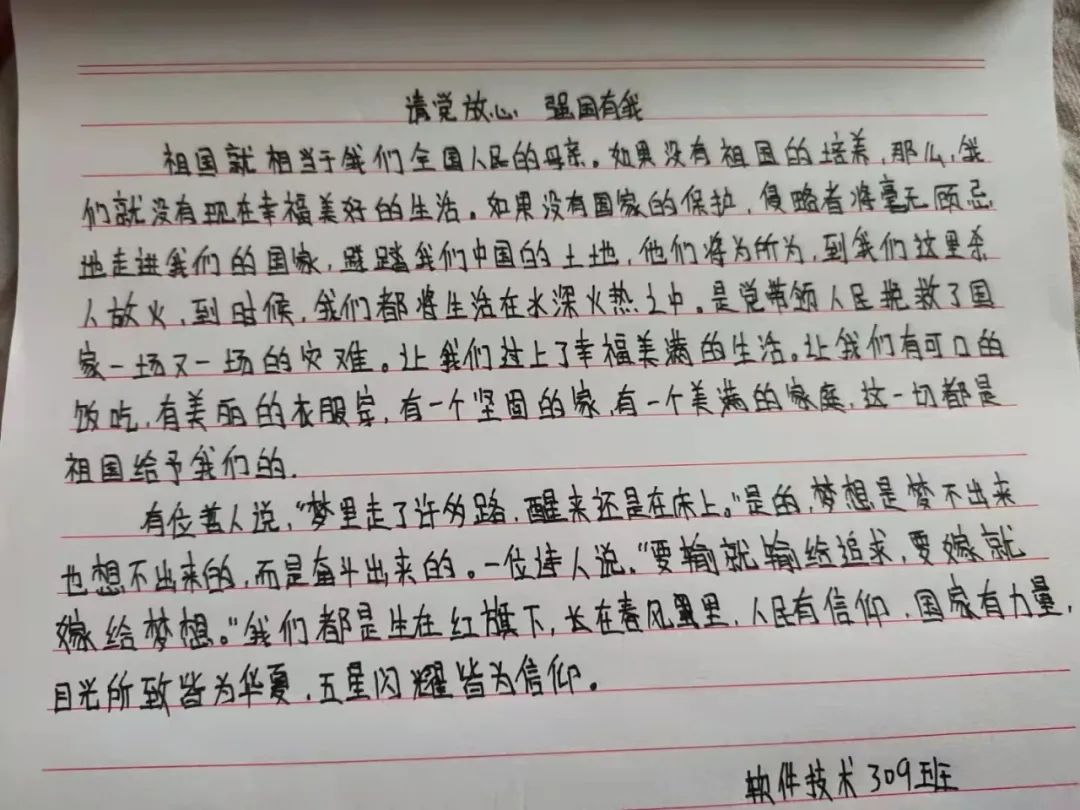 请党放心 强国有我
祖国就相当于我们全国人民的母亲。如果没有祖国的培养,那么,我
们就没有现在幸福美好的生活。如果没有国家的保护,侵略者将毫无顾忌
地走进我们的国家,踐踏我们中国的土地,他们将为所为,到我们这里杀
人放火,到时候,我们都将生活在水深火热之中。是党带领人民挽救了国
家一场又一场的灾难。让我们过上了幸福美满的生活。让我们有可口的
饭吃,有美丽的衣服穿,有一个坚固的家,有一个美满的家庭,这一切都是
祖国给予我们的.
有位哲人说,“梦里走了许多路,醒来还是在床上。”是的,梦想是梦不出来
也想不出来的,而是奋斗出来的。一位诗人说,“要输就输给追求,要嫁就
嫁给梦想。”我们都是生在红旗下,长在春风里,人民有信仰,国家有力量,
目光所致皆为华夏,五星闪耀皆为信仰。
软件技术309班